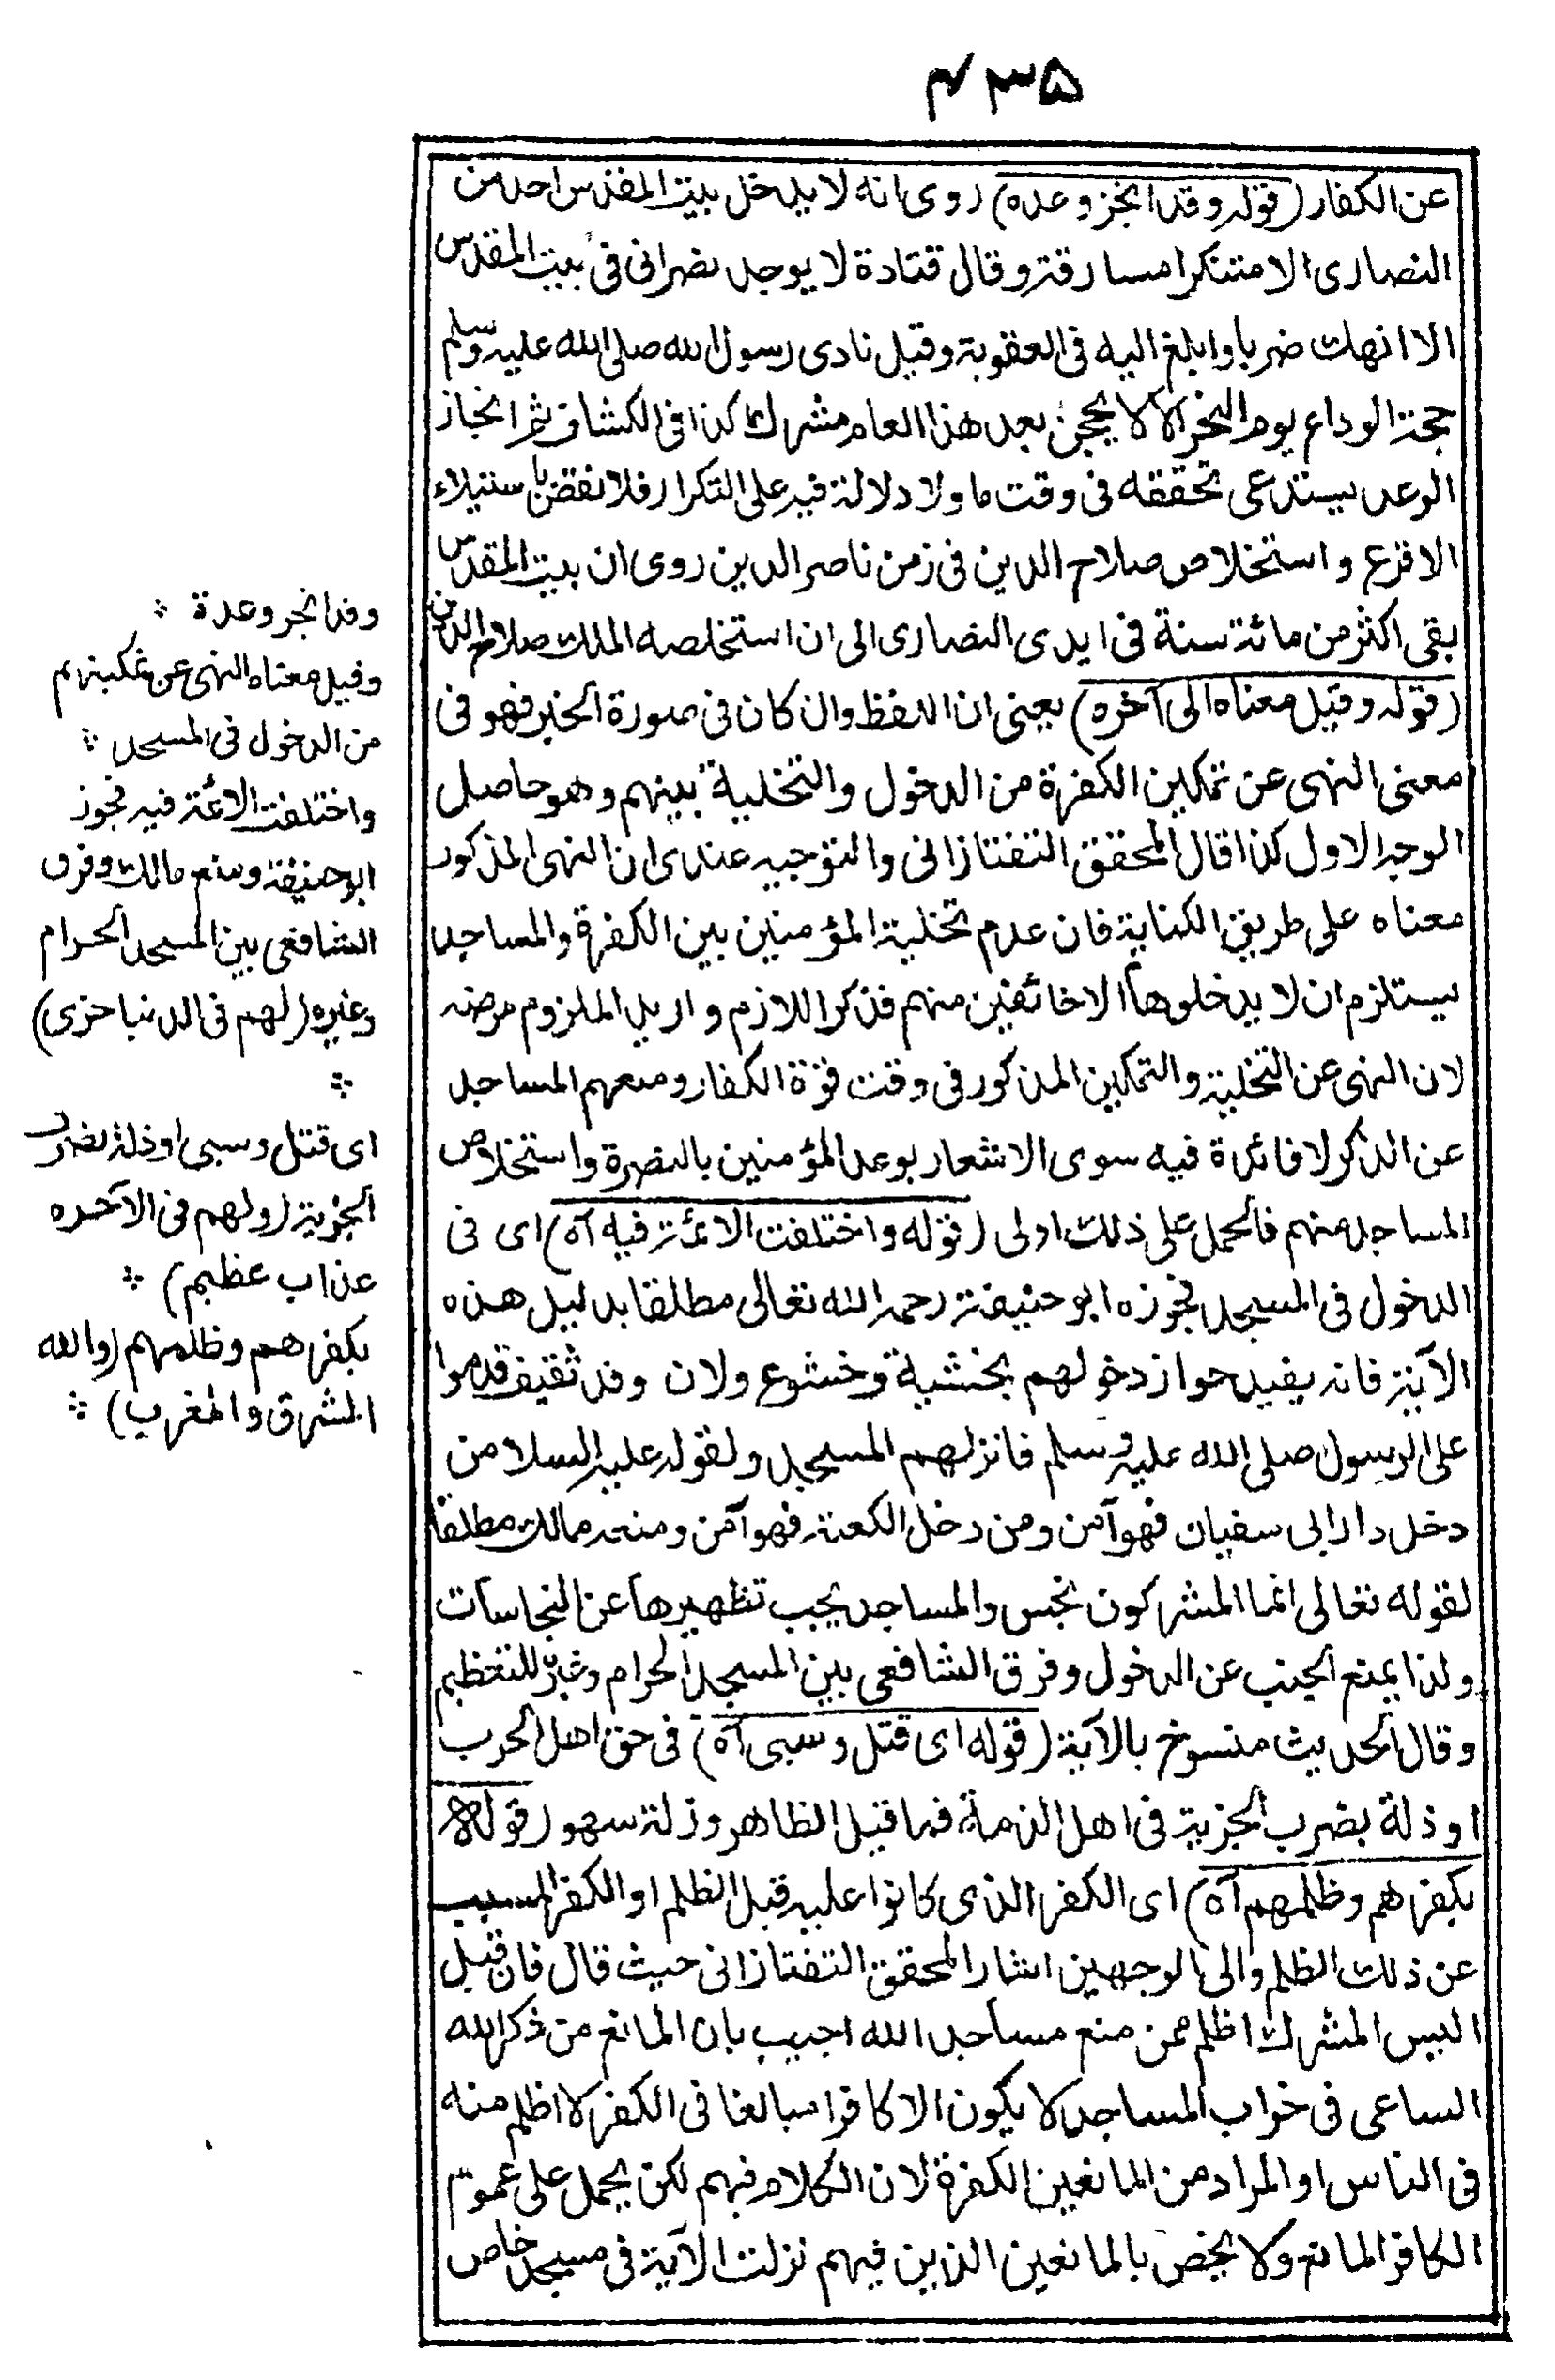 ۴۳۵
عن الكفار (قوله وقد انجز وعده) روى انه لا يدخل بيت المقدس احد من
النصارى الا متنكرا مسارقة وقال قتادة لا يوجد نصرانى فى بيت المقدس
الا انهك ضربا وابلغ اليه فى العقوبة وقيل نادى رسول الله صلى الله عليه وسلم
حجة الوداع يوم النحر الا لا يحجن بعد هذا العام مشرك كذا فى الكشاف ثم انجاز
الوعد يستدعى تحققه فى وقت ما ولا دلالة فيه على التكرار فلا نقض باستيلاء
الاقرع واستخلاص صلاح الدين فى زمن ناصر الدين روى ان بيت المقدس
بقى اكثر من مائة سنة فى ايدى النصارى الى ان استخلصه الملك صلاح الدين
(قوله وقيل معناه الى آخره) يعنى ان اللفظ وان كان فى صورة الخبر فهو فى
معنى النهى عن تمكين الكفرة من الدخول والتخلية بينهم وهو حاصل
الوجه الاول كذا قال المحقق التفتازانى والتوجيه عندى ان النهى المذكور
معناه على طريق الكناية فان عدم تخلية المؤمنين بين الكفرة والمساجد
يستلزم ان لا يدخلوها الا خائفين منهم فذكر اللازم واريد الملزوم مرضه
لان النهى عن التخلية والتمكين المذكور فى وقت قوة الكفار ومنعهم المساجد
عن الذكر لا فائدة فيه سوى الاشعار بوعد المؤمنين بالنصرة واستخلاص
المساجد منهم فالحمل على ذلك اولى (قوله واختلفت الائمة فيه آه) اى فى
الدخول فى المسجد فجوزه ابو حنيفة رحمه الله تعالى مطلقا بدليل هذه
الآية فانه يفيد جواز دخولهم بخشية وخشوع ولان وفد ثقيف قدموا
على الرسول صلى الله عليه وسلم فانزلهم المسجد ولقوله عليه السلام من
دخل دار ابى سفيان فهو آمن ومن دخل الكعبة فهو آمن ومنعه مالك مطلقا
لقوله تعالى انما المشركون نجس والمساجد يجب تطهيرها عن النجاسات
ولذا يمنع الجنب عن الدخول وفرق الشافعى بين المسجد الحرام وغيره للتعظيم
وقال الحديث منسوخ بالآية (قوله اى قتل وسبى آه) فى حق اهل الحرب
او ذلة بضرب الجزية فى اهل الذمة فما قيل الظاهر وذلة سهو (قوله
بكفرهم وظلمهم آه) اى الكفر الذى كانوا عليه قبل الظلم او الكفر المسبب
عن ذلك الظلم والى الوجهين اشار المحقق التفتازانى حيث قال فان قيل
اليس المشرك اظلم ممن منع مساجد الله اجيب بان المانع من ذكر الله
الساعى فى خراب المساجد لا يكون الا كافرا مبالغا فى الكفر لا اظلم منه
فى الناس او المراد من المانعين الكفرة لان الكلام فيهم لكن يحمل على عموم
الكافر المانع ولا يخص بالمانعين الذين فيهم نزلت الآية فى مسجد خاص
وقد انجز وعدة
وقيل معناه النهى عن تمكينهم
من الدخول فى المسجد
واختلفت الائمة فيه فجوز
ابو حنيفة ومنع مالك وفرق
الشافعى بين المسجد الحرام
وغيره (لهم فى الدنيا خزى)
اى قتل وسبى او ذلة بضرب
الجزية (ولهم فى الآخره
عذاب عظيم)
بكفرهم وظلمهم (والله
المشرق والمغرب)